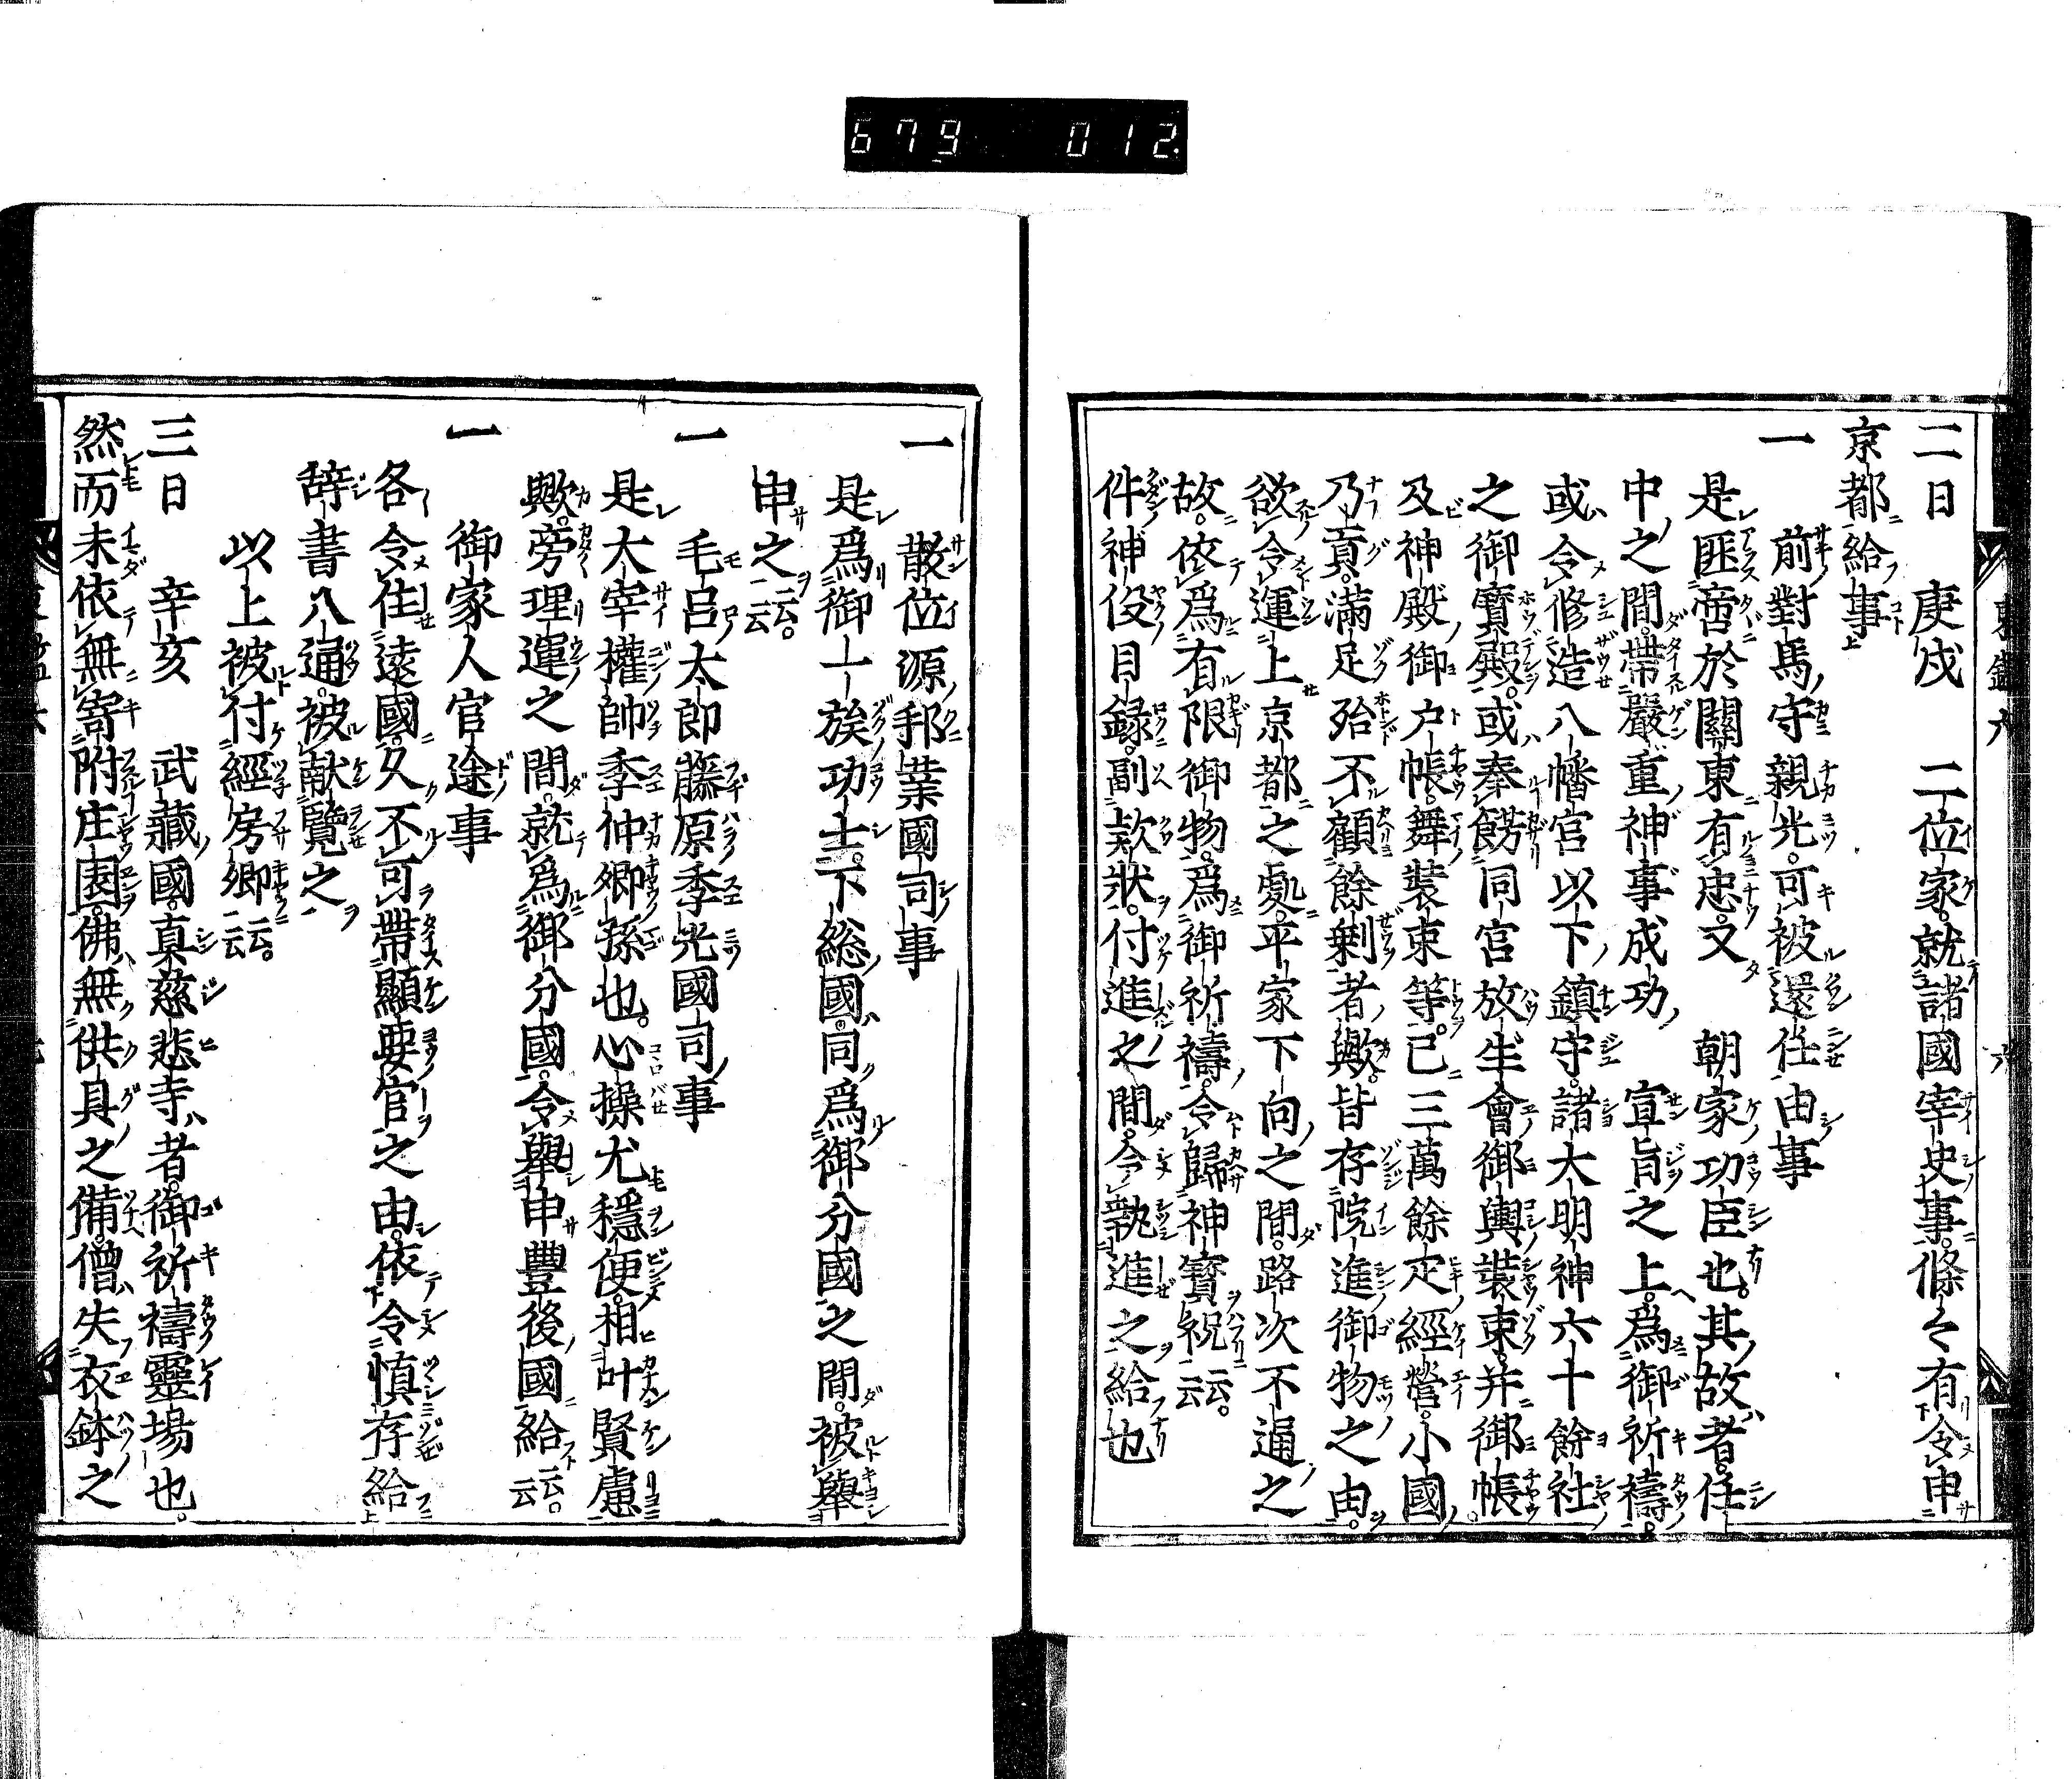 679 012
二日 庚戌 二位家就諸國宰吏事條々有令申
京都給事
一 前對馬守親光可被還任由事
是匪啻於關東有忠又 朝家功臣也其故者任
中之間帶嚴重神事成功 宣旨之上爲御祈禱
或令修造八幡宮以下鎮守諸大明神六十餘社
之御寶殿或奉餝同宮放生會御輿裝束并御帳
及神殿御戸帳舞裝束等已三萬餘疋經營小國
乃貢滿足殆不顧餘剰者歟皆存院進御物之由
欲令運上京都之處平家下向之間路次不通之
故依爲有限御物爲御祈禱令歸神寶祝云云
件神役目録副欵狀付進之間令執進之給也
一 散位源邦業國司事
是爲御一族功士下総國同爲御分國之間被舉
申之云云
一 毛呂太郎藤原季光國司事
是大宰權帥季仲卿孫也心操尤穩便相叶賢慮
歟旁理運之間就爲御分國令舉申豐後國給云云
一 御家人官途事
各令住遠國久不可帶顯要官之由依令慎存給
辞書八通被献覽之
以上被付經房卿云云
三日 辛亥 武藏國真慈悲寺者御祈禱靈場也
然而未依無寄附庄園佛無供具之備僧失衣鉢之